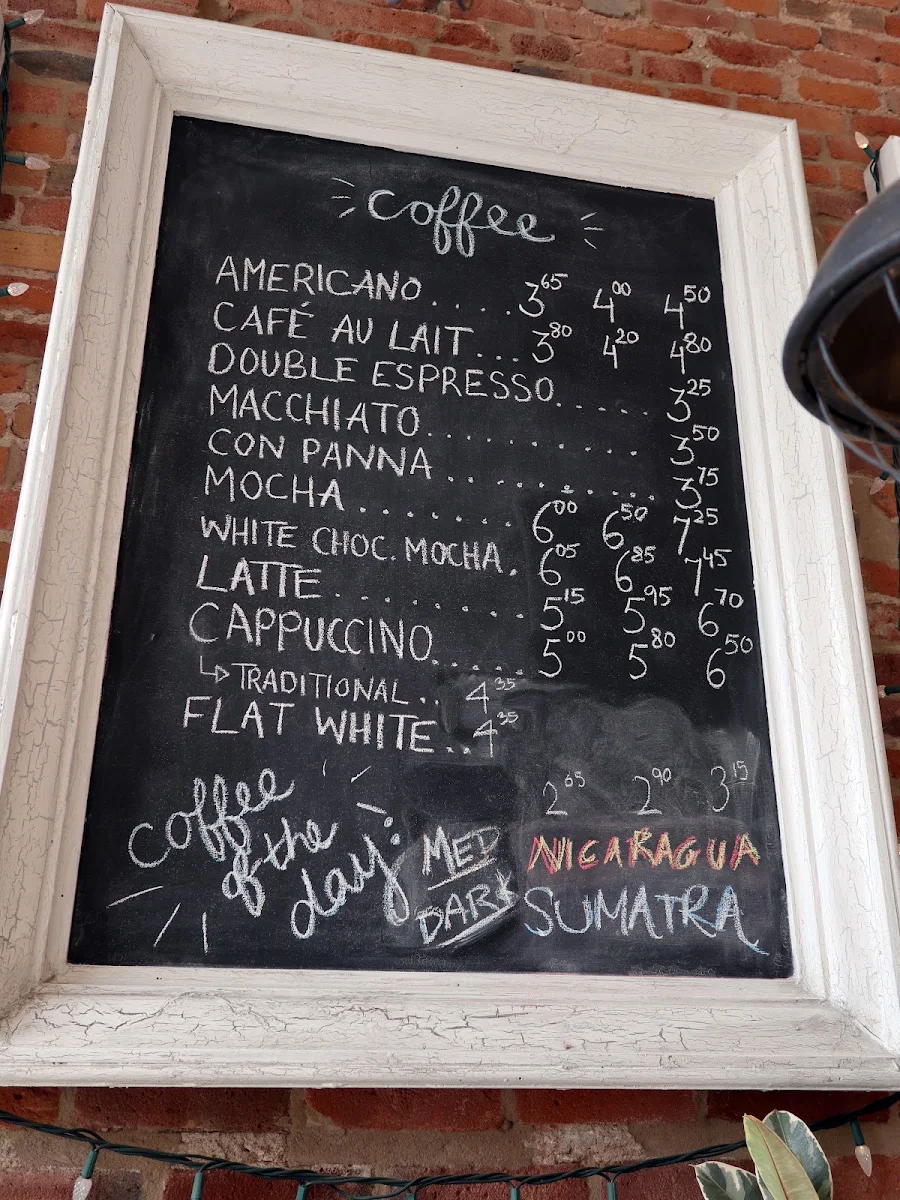 coffee
AMERICANO....3.65 4.00 4.50
CAFÉ AU LAIT...3.80 4.20 4.80
DOUBLE ESPRESSO......3.25
MACCHIATO.........3.50
CON PANNA.........3.75
MOCHA.......6.00 6.50 7.25
WHITE CHOC. MOCHA.6.05 6.85 7.45
LATTE........5.15 5.95 6.70
CAPPUCCINO.....5.00 5.80 6.50
↳TRADITIONAL..4.35
FLAT WHITE..4.35
2.65 2.90 3.15
coffee of the day:
MED NICARAGUA
DARK SUMATRA